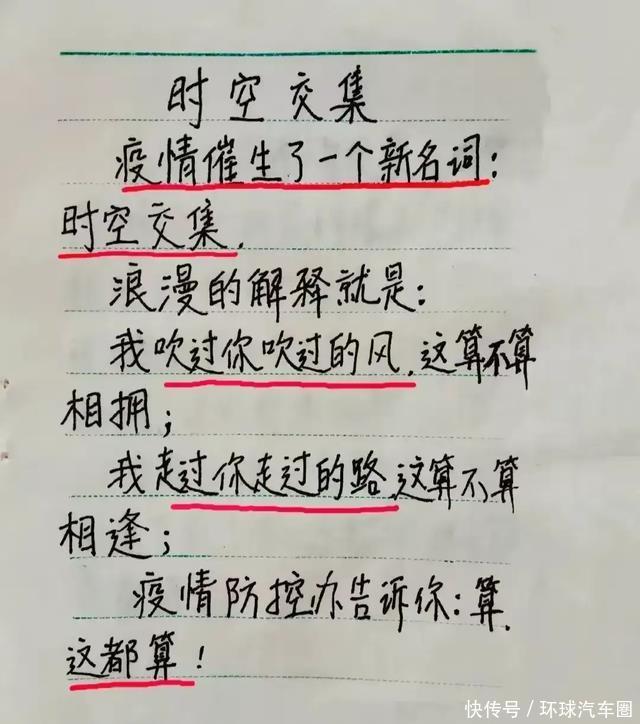 时空交集
疫情催生了一个新名词:
时空交集.
浪漫的解释就是:
我吹过你吹过的风,这算不算
相拥;
我走过你走过的路,这算不算
相逢;
疫情防控办告诉你:算,
这都算!
快传号/环球汽车圈